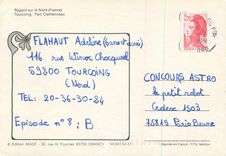 Regard sur le Nord (France)
Tourcoing. Parc Clemenceau
FLAHAUT Adeline (6 ans et demi)
116 rue Winoc Chocqueel
59200 TOURCOING
(Nord)
TEL: 20-36-30-24
Episode n° 8 : B
CONCOURS ASTRO
le petit robot
Cedex 1503
75815 Paris Brune
2,20